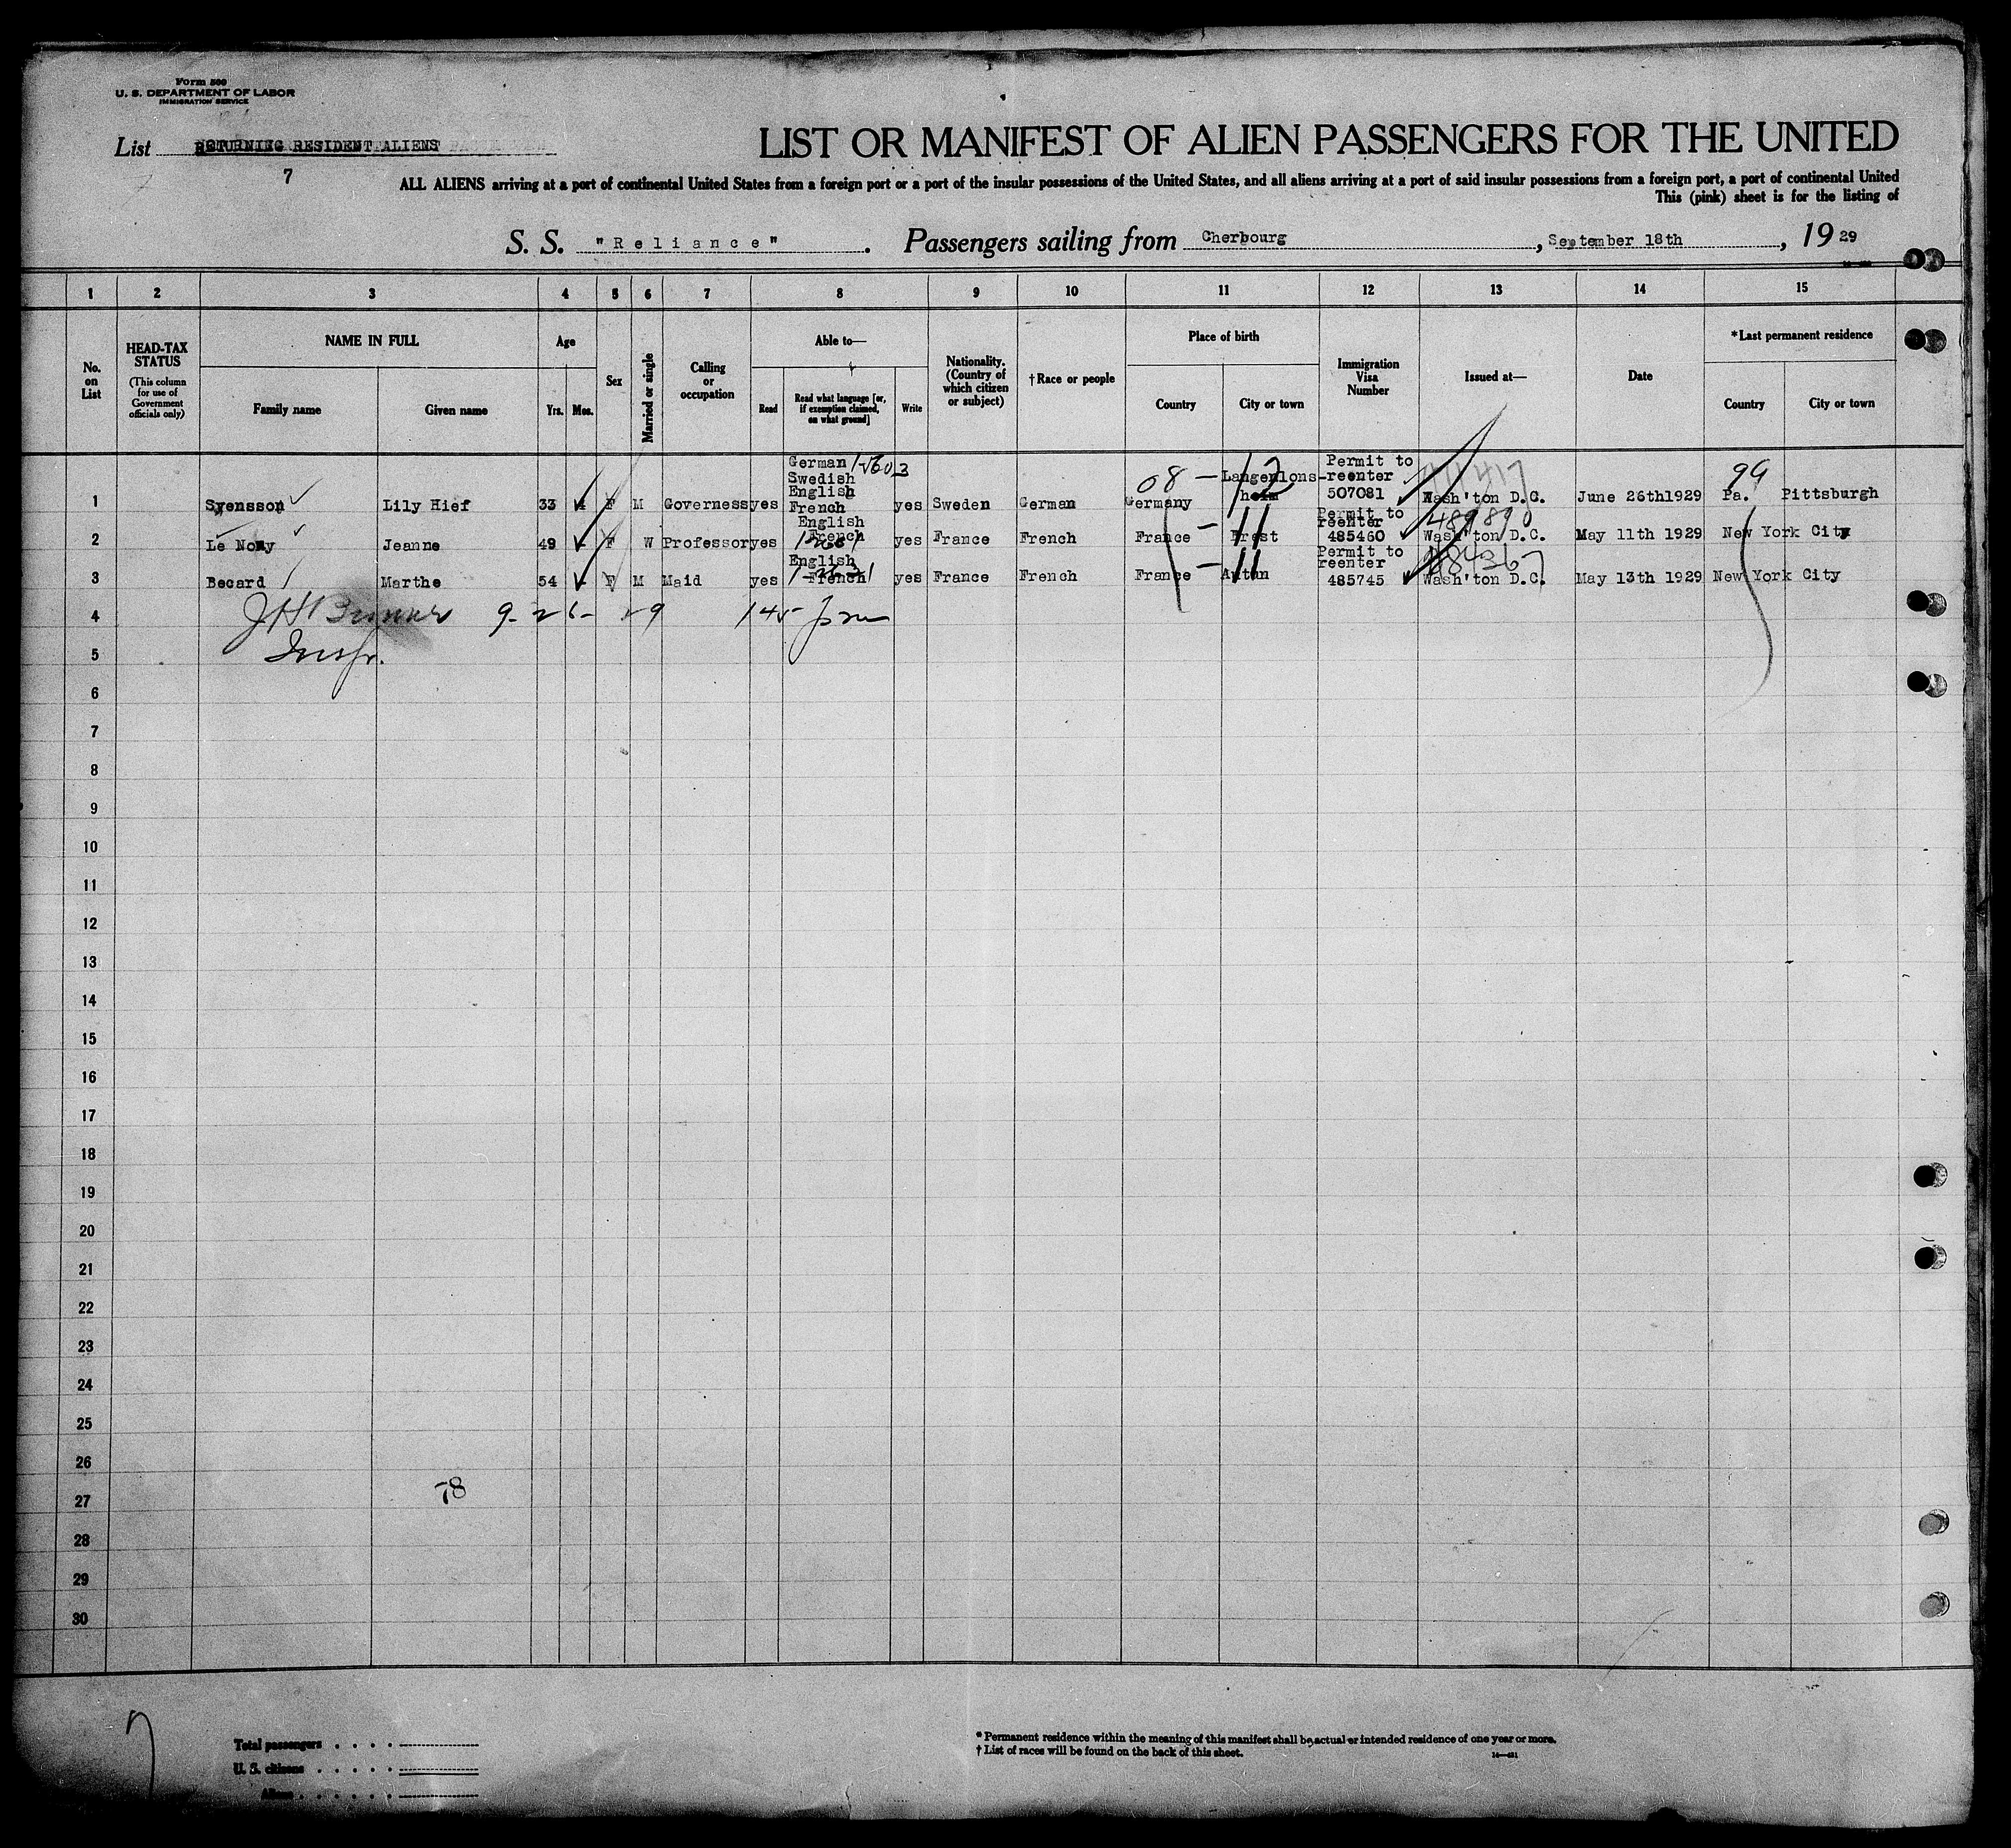 Form 500
U. S. DEPARTMENT OF LABOR
IMMIGRATION SERVICE
List RETURNING RESIDENT ALIENS
7
LIST OR MANIFEST OF ALIEN PASSENGERS FOR THE UNITED
ALL ALIENS arriving at a port of continental United States from a foreign port or a port of the insular possessions of the United States, and all aliens arriving at a port of said insular possessions from a foreign port, a port of continental United
This (pink) sheet is for the listing of
S. S. "Reliance". Passengers sailing from Cherbourg, September 18th, 1929
1 2 3 4 5 6 7 8 9 10 11 12 13 14 15
No. on List
HEAD-TAX STATUS (This column for use of Government officials only)
NAME IN FULL
Family name
Given name
Age
Yrs. Mos.
Sex
Married or single
Calling or occupation
Able to—
Read
Read what language [or, if exemption claimed, on what ground]
Write
Nationality. (Country of which citizen or subject)
†Race or people
Place of birth
Country
City or town
Immigration Visa Number
Issued at—
Date
*Last permanent residence
Country
City or town
1 Svensson Lily Hief 33 F M Governess yes German Swedish English French yes Sweden German Germany Langenlonsheim Permit to reenter 507081 Wash'ton D.C. June 26th1929 Pa. Pittsburgh
08 - 12 99
2 Le Nony Jeanne 49 F W Professor yes English French yes France French France Brest Permit to reenter 485460 Wash'ton D.C. May 11th 1929 New York City
- 11 489890
3 Becard Marthe 54 F M Maid yes English French yes France French France Autun Permit to reenter 485745 Wash'ton D.C. May 13th 1929 New York City
- 11
4 9-26-29
5 Insp.
6
7
8
9
10
11
12
13
14
15
16
17
18
19
20
21
22
23
24
25
26
27
28
29
30
78
7
Total passengers
U. S. citizens
Aliens
* Permanent residence within the meaning of this manifest shall be actual or intended residence of one year or more.
† List of races will be found on the back of this sheet.